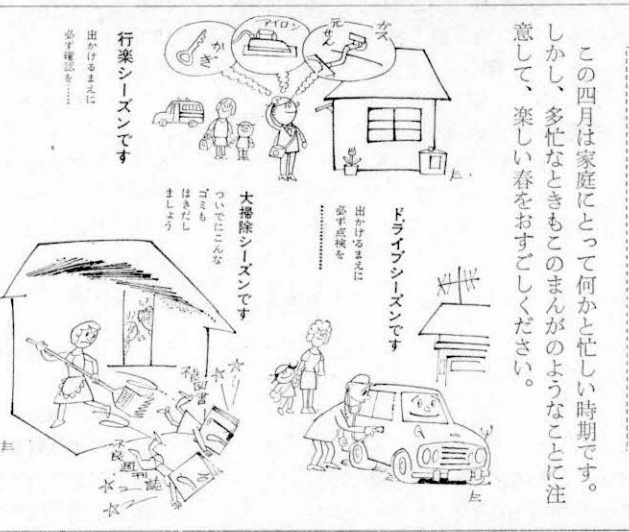 この四月は家庭にとって何かと忙しい時期です。
しかし、多忙なときもこのまんがのようなことに注
意して、楽しい春をおすごしください。
ガス
元せん
アイロン
かぎ
行楽シーズンです
出かけるまえに
必ず確認を……
ドライブシーズンです
出かけるまえに
必ず点検を
…………
大掃除シーズンです
ついでにこんな
ゴミも
はきだし
ましょう
不良図書
不良週刊誌